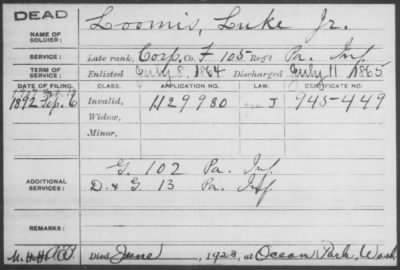 DEAD
NAME OF SOLDIER: Loomis, Luke Jr.
SERVICE: Late rank, Corp. Co. F 105 Reg't Pa. Inf.
TERM OF SERVICE: Enlisted July 8, 1864 Discharged July 11 1865
DATE OF FILING. CLASS. APPLICATION NO. LAW. CERTIFICATE NO.
1892 Sep. 6 Invalid, 1129980 J 945-449
Widow,
Minor,
ADDITIONAL SERVICES: G. 102 Pa. Inf.
D. & G. 13 Pa. Inf.
REMARKS:
Died June, 1923, at Ocean Park, Wash